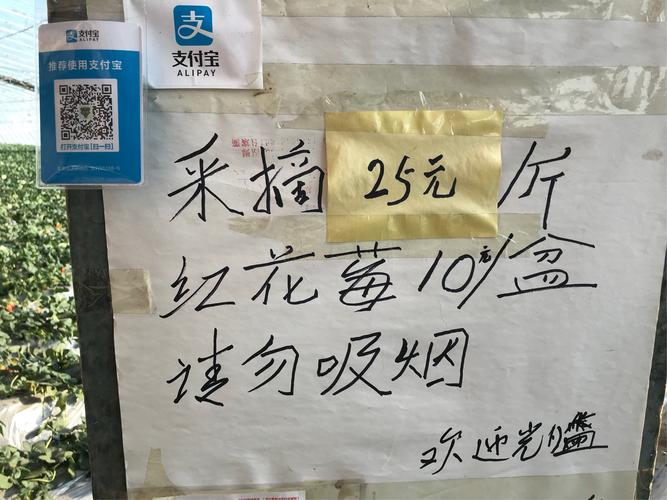 支付宝
ALIPAY
推荐使用支付宝
打开支付宝[扫一扫]
支付宝
ALIPAY
采摘 25元 斤
红花莓10元/盆
请勿吸烟
欢迎光临